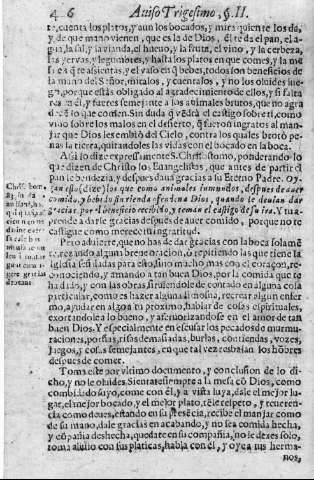 46 Aviso Trigesimo, §. II.
te, cuenta los platos, y aun los bocados, y mira quien te los da,
y de que mano vienen, que es la de Dios, él te da el pan, el a-
gua, la sal, y la vianda, el huevo, y la fruta, el vino, y la cerbeza,
las yervas, y legumbres, y hasta los platos en que comes, y la me
sa q̃ te assientas, y el vaso en q̃ bebes, todos son beneficios de
la mano del Señor, miralos, y cuentalos, y no los olvides lue-
go, por que estàs obligado al agradecimiento de ellos, y si falta
rea en él, y fueres semejante à los animales brutos, que no agra
decẽ lo que comen. Sin duda q̃ vẽdrà el castigo sobre ti, como
vino sobre los malos en el desierto, q̃ fueron ingratos al man-
jar que Dios les embiò del Cielo, contra los quales brotò pe-
nas la tierra, quitandoles las vidas con el bocado en la boca.
Assi lo dize expressamente S. Chrisostomo, ponderando lo
que dizen de Christo los Evangelistas, que antes de partir el
pan le bendezia, y despues daua gracias à su Eterno Padre. Oy-
gan esto (dize) los que como animales inmundos, despues de auer
comido, y bebido sin rienda ofenden à Dios, quando le deuian dar
gracias por el beneficio recibido, y teman el castigo de su ira. Y tu a-
prende à darle gracias despues de auer comido, porque no te
castigue como merece tu ingratitud.
Pero aduierte, que no has de dar gracias con la boca solamẽ
te, rezando algun breue oracion, ò repitiendo las que tiene la
Iglesia señaladas para esto, sino mucho mas con el coraçon, re-
conociendo, y amando à tan buen Dios, por la comida que te
ha dado, y con las obras, siruiendole de contado en alguna cosa
particular, como es hazer alguna limosna, recrear algun enfer
mo, ayudar en algo a tu proximo, hablar de cosas espirituales,
exortandole à lo bueno, y afervorizandose en el amor de tan
buen Dios. Y especialmente en escusar los pecados de murmu-
raciones, porfias, risas demasiadas, burlas, contiendas, vozes,
juegos, y cosas semejantes, en que tal vez resbalan los hõbres
despues de comer.
Toma este por vltimo documento, y conclusion de lo di-
cho, y no le oluides. Sientate siempre à la mesa cõ Dios, como
combidado suyo, come con él, y à vista suya, dale el mejor lu-
gar, el mejor bocado, y el mejor plato, tẽle respeto, y reueren-
cia como deues, estando en su presẽcia, recibe el manjar como
de su mano, dale gracias en acabando, y no sea comida hecha,
y cõpañia deshecha, quedate en su compañia, no le dexes solo,
toma aliuio con sus platicas, habla con él, y oyea tus herma-
nos,